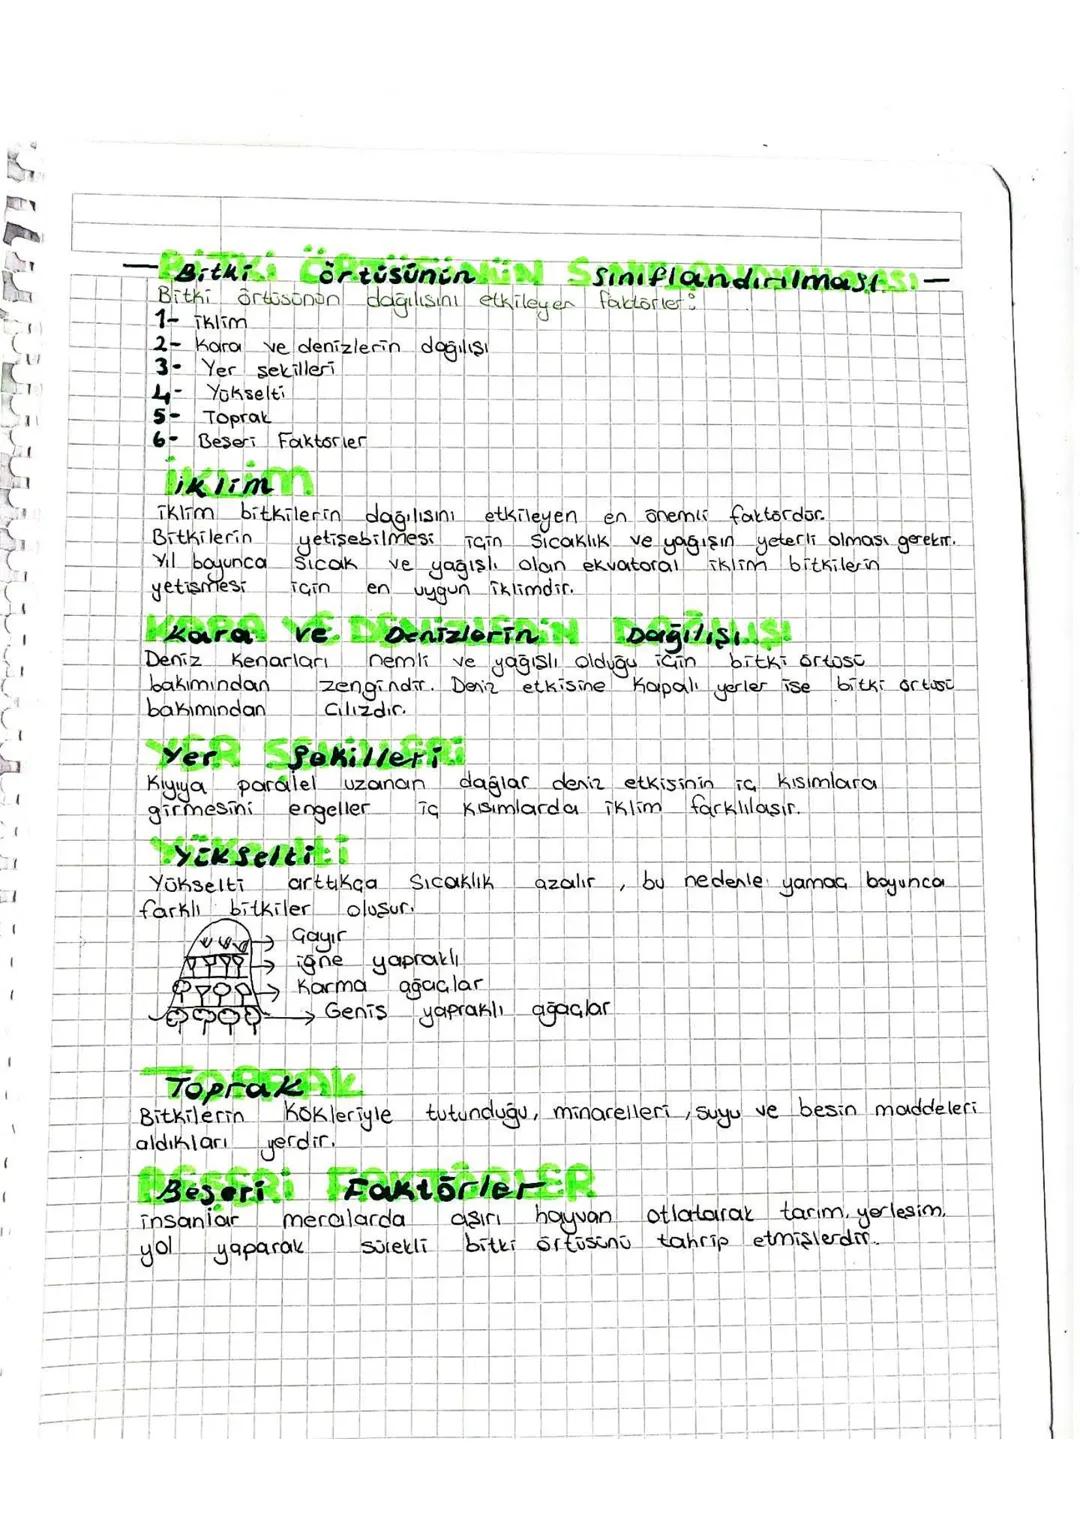 Bitki örtüsünün Sınıflandırılması
Bitki örtüsünün dağılısını etkileyen faktörler:
1- iklim
2- Kara ve denizlerin dağılışı
3- Yer sekilleri
4- Yükselti
5- Toprak
6- Beşeri Faktörler
iklim
iklim bitkilerin dağılısını etkileyen en önemli faktördür.
Bitkilerin yetişebilmesi için Sıcaklık ve yağışın yeterli olması gerekir.
Yıl boyunca Sıcak ve yağışlı olan ekvatoral iklim bitkilerin
yetismesi için en uygun iklimdir.
Kara ve Denizlerin Dağılışı
Deniz Kenarları nemli ve yağışlı olduğu için bitki örtüsü
bakımından zengindir. Deniz etkisine Kapalı yerler ise bitki örtüsü
bakımından Cılızdır.
Yer Şekilleri
Kıyıya paralel uzanan dağlar deniz etkisinin iç kısımlara
girmesini engeller iç kısımlarda iklim farklılaşır.
Yükselti
Yükselti arttıkça Sıcaklık azalır, bu nedenle yamaç boyunca
farklı bitkiler oluşur.
Çayır
iğne yapraklı
Karma ağaçlar
Geniş yapraklı ağaçlar
Toprak
Bitkilerin Kökleriyle tutunduğu, minarelleri, suyu ve besin maddeleri
aldıkları yerdir.
Beşeri Faktörler
insanlar meralarda aşırı hayvan otlatarak tarım, yerlesim,
yol yaparak sürekli bitki örtüsünü tahrip etmişlerdir.